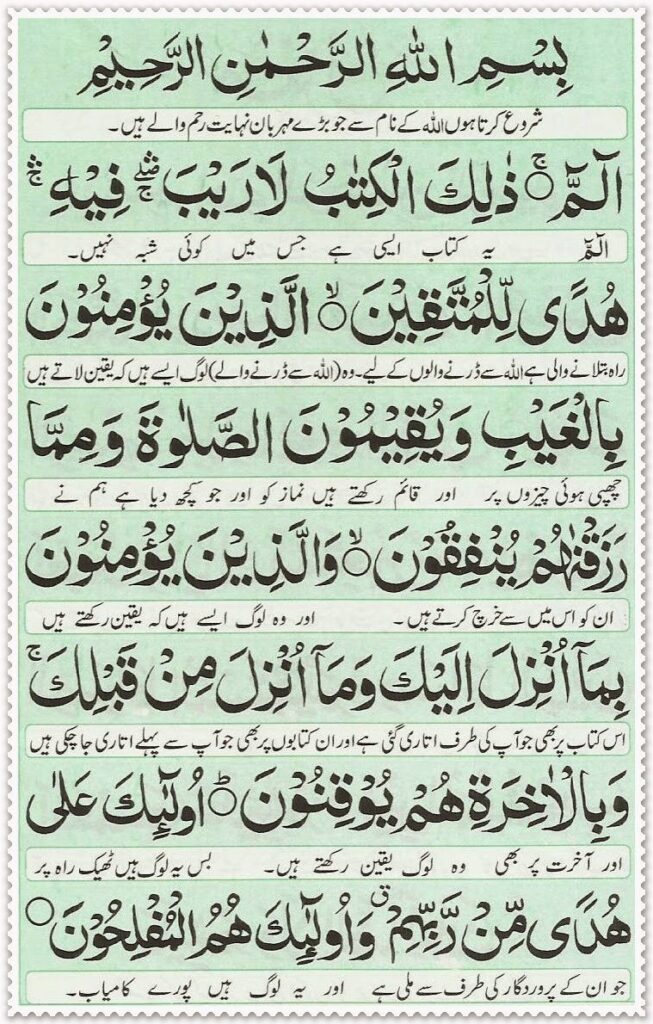 بِسْمِ اللهِ الرَّحْمٰنِ الرَّحِيْمِ
شروع کرتا ہوں اللہ کے نام سے جو بڑے مہربان نہایت رحم والے ہیں۔
الٓمّٓ ۚ○ ذٰلِكَ الْكِتٰبُ لَا رَيْبَ ۛۖۚ فِيْهِ ۛۚ
الٓمّٓ یہ کتاب ایسی ہے جس میں کوئی شبہ نہیں۔
هُدًى لِّلْمُتَّقِيْنَ ۙ○ الَّذِيْنَ يُؤْمِنُوْنَ
راہ بتلانے والی ہے اللہ سے ڈرنے والوں کے لیے۔ وہ (اللہ سے ڈرنے والے) لوگ ایسے ہیں کہ یقین لاتے ہیں
بِالْغَيْبِ وَيُقِيْمُوْنَ الصَّلٰوةَ وَمِمَّا
چھپی ہوئی چیزوں پر اور قائم رکھتے ہیں نماز کو اور جو کچھ دیا ہے ہم نے
رَزَقْنٰهُمْ يُنْفِقُوْنَ ۙ○ وَالَّذِيْنَ يُؤْمِنُوْنَ
ان کو اس میں سے خرچ کرتے ہیں۔ اور وہ لوگ ایسے ہیں کہ یقین رکھتے ہیں
بِمَآ اُنْزِلَ اِلَيْكَ وَمَآ اُنْزِلَ مِنْ قَبْلِكَ ۚ
اس کتاب پر بھی جو آپ کی طرف اتاری گئی ہے اور ان کتابوں پر بھی جو آپ سے پہلے اتاری جا چکی ہیں
وَبِالْاٰخِرَةِ هُمْ يُوْقِنُوْنَ ؕ○ اُولٰٓئِكَ عَلٰى
اور آخرت پر بھی وہ لوگ یقین رکھتے ہیں۔ بس یہ لوگ ہیں ٹھیک راہ پر
هُدًى مِّنْ رَّبِّهِمْ ۗ وَاُولٰٓئِكَ هُمُ الْمُفْلِحُوْنَ ○
جو ان کے پروردگار کی طرف سے ملی ہے اور یہ لوگ ہیں پورے کامیاب۔